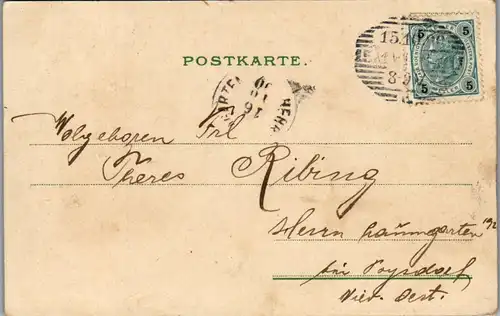 POSTKARTE.
5 5
5 5
Wolgeboren Frl
Theres Ribing
Herrn baumgarten
bei Poysdorf
Nied. Oest.